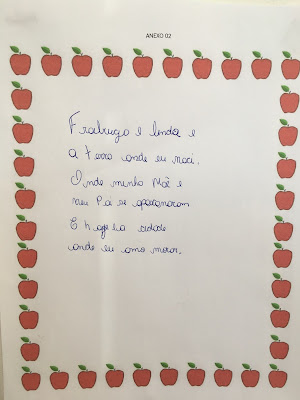 ANEXO 02
Fraiburgo é linda e
a terra onde eu naci.
Onde minha Mãe e
meu Pai se apaxonaram
E hoje é a cidade
onde eu amo morar.